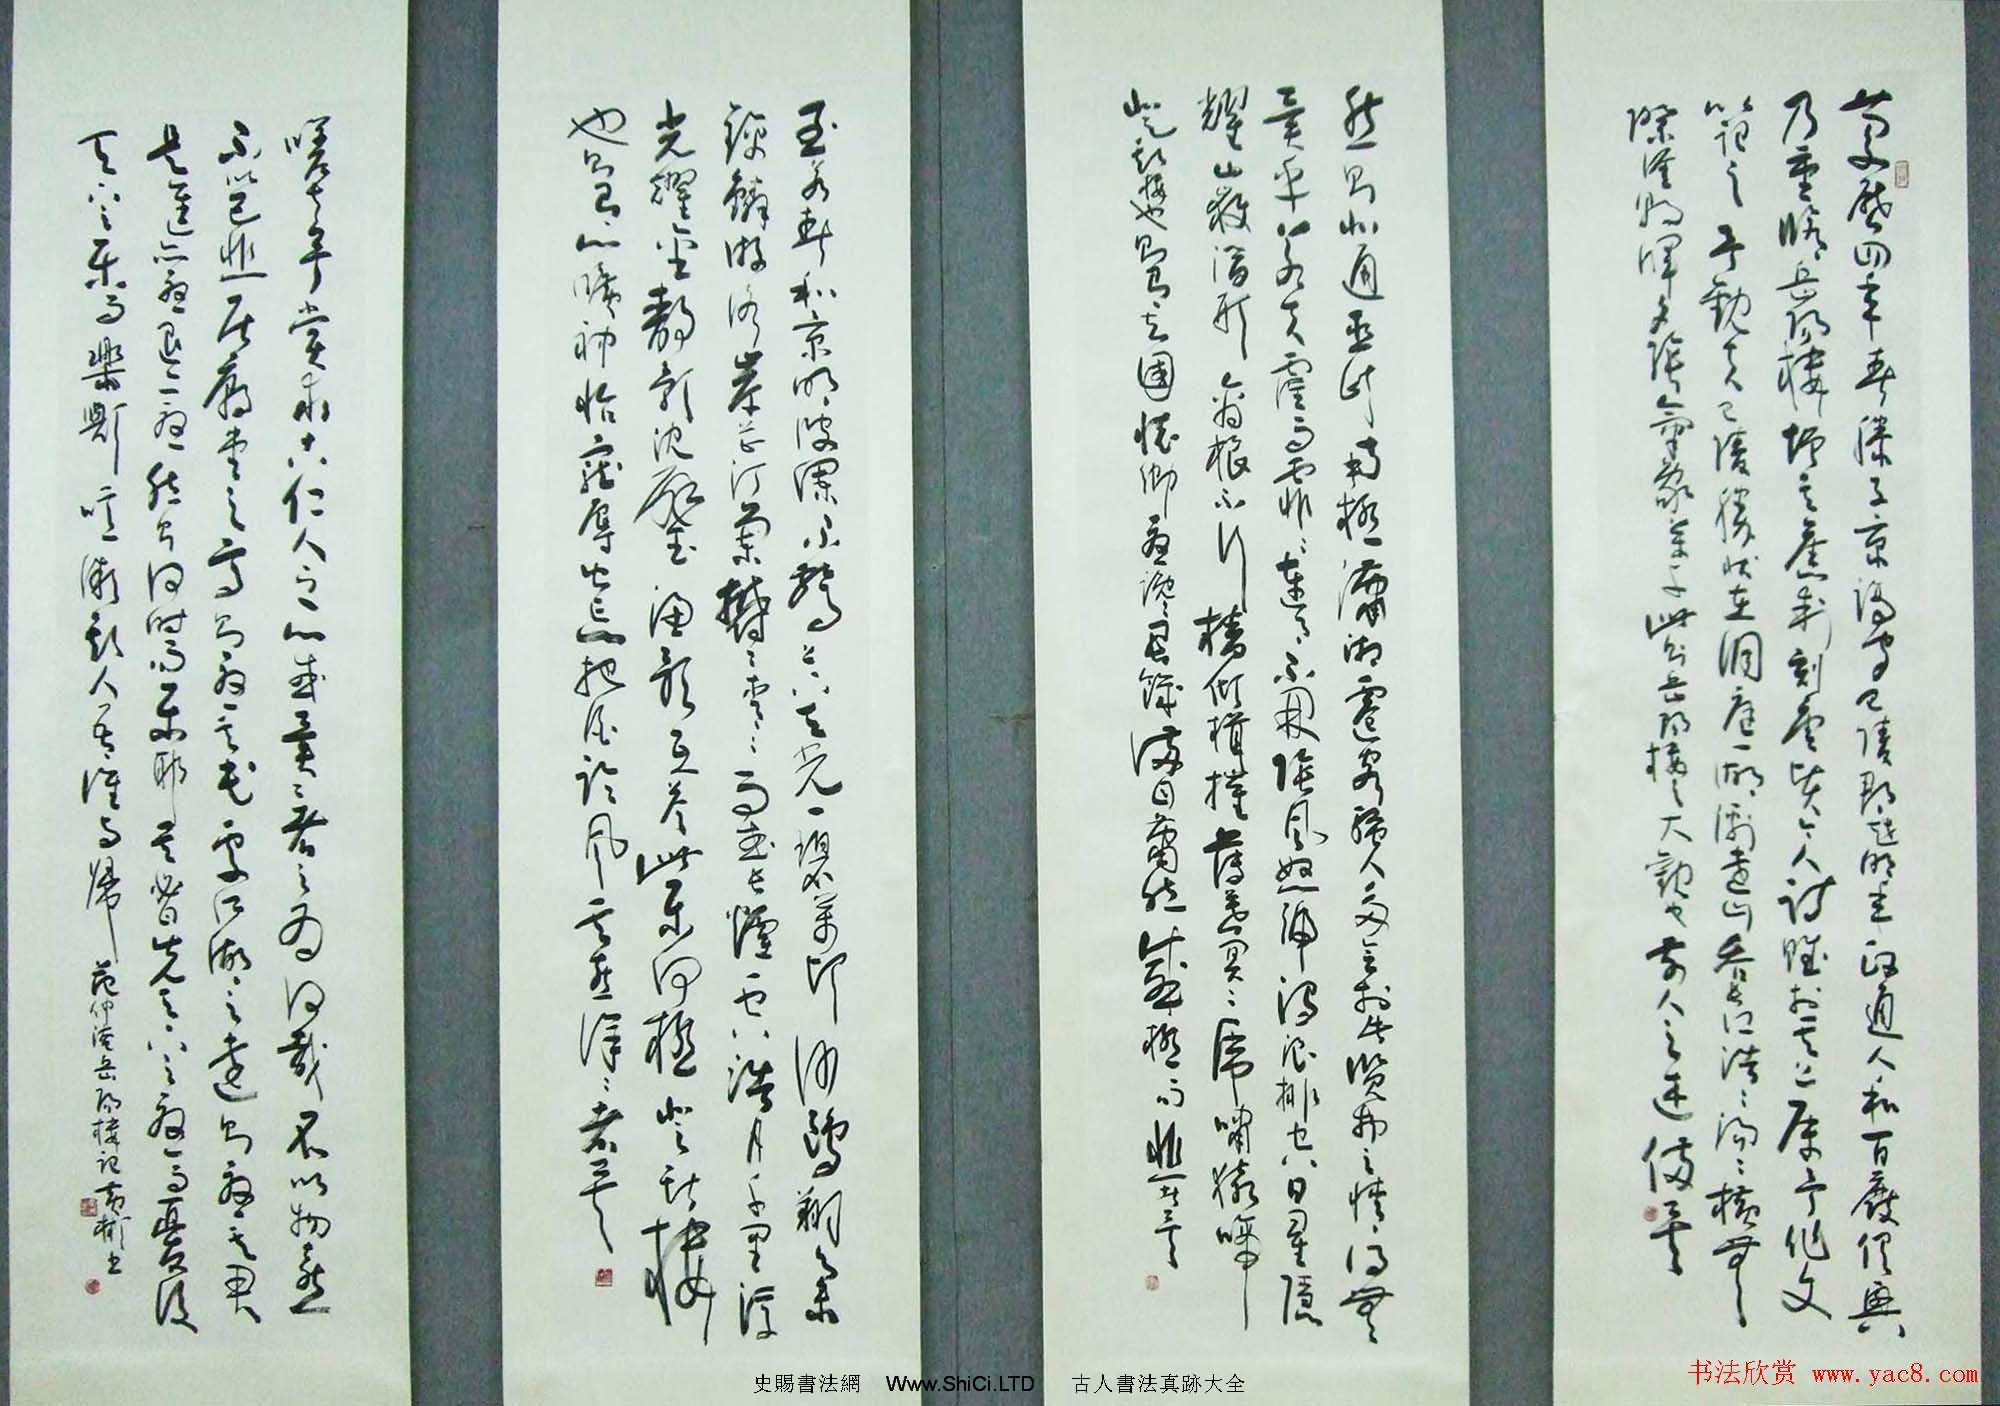 慶歷四年春滕子京謫守巴陵郡越明年政通人和百廢俱興
乃重脩岳陽樓增其舊制刻唐賢今人詩賦於其上屬予作文
以記之予觀夫巴陵勝狀在洞庭一湖銜遠山吞長江浩浩湯湯橫無
際涯朝暉夕陰氣象萬千此則岳陽樓之大觀也前人之述備矣
然則北通巫峽南極瀟湘遷客騷人多會於此覽物之情得無
異乎若夫霪雨霏霏連月不開陰風怒號濁浪排空日星隱
耀山嶽潛形商旅不行檣傾楫摧薄暮冥冥虎嘯猿啼
登斯樓也則有去國懷鄉憂讒畏譏滿目蕭然感極而悲者矣
至若春和景明波瀾不驚上下天光一碧萬頃沙鷗翔集
錦鱗游泳岸芷汀蘭鬱鬱青青而或長煙一空皓月千里浮
光耀金靜影沈璧漁歌互答此樂何極登斯樓
也則有心曠神怡寵辱皆忘把酒臨風其喜洋洋者矣
嗟夫予嘗求古仁人之心或異二者之為何哉不以物喜
不以己悲居廟堂之高則憂其民處江湖之遠則憂其君
是進亦憂退亦憂然則何時而樂耶其必曰先天下之憂而憂後
天下之樂而樂歟噫微斯人吾誰與歸
范仲淹岳陽樓記 書
史賜書法網 Www.ShiCi.LTD 古人書法真跡大全
书法欣赏 www.yac8.com